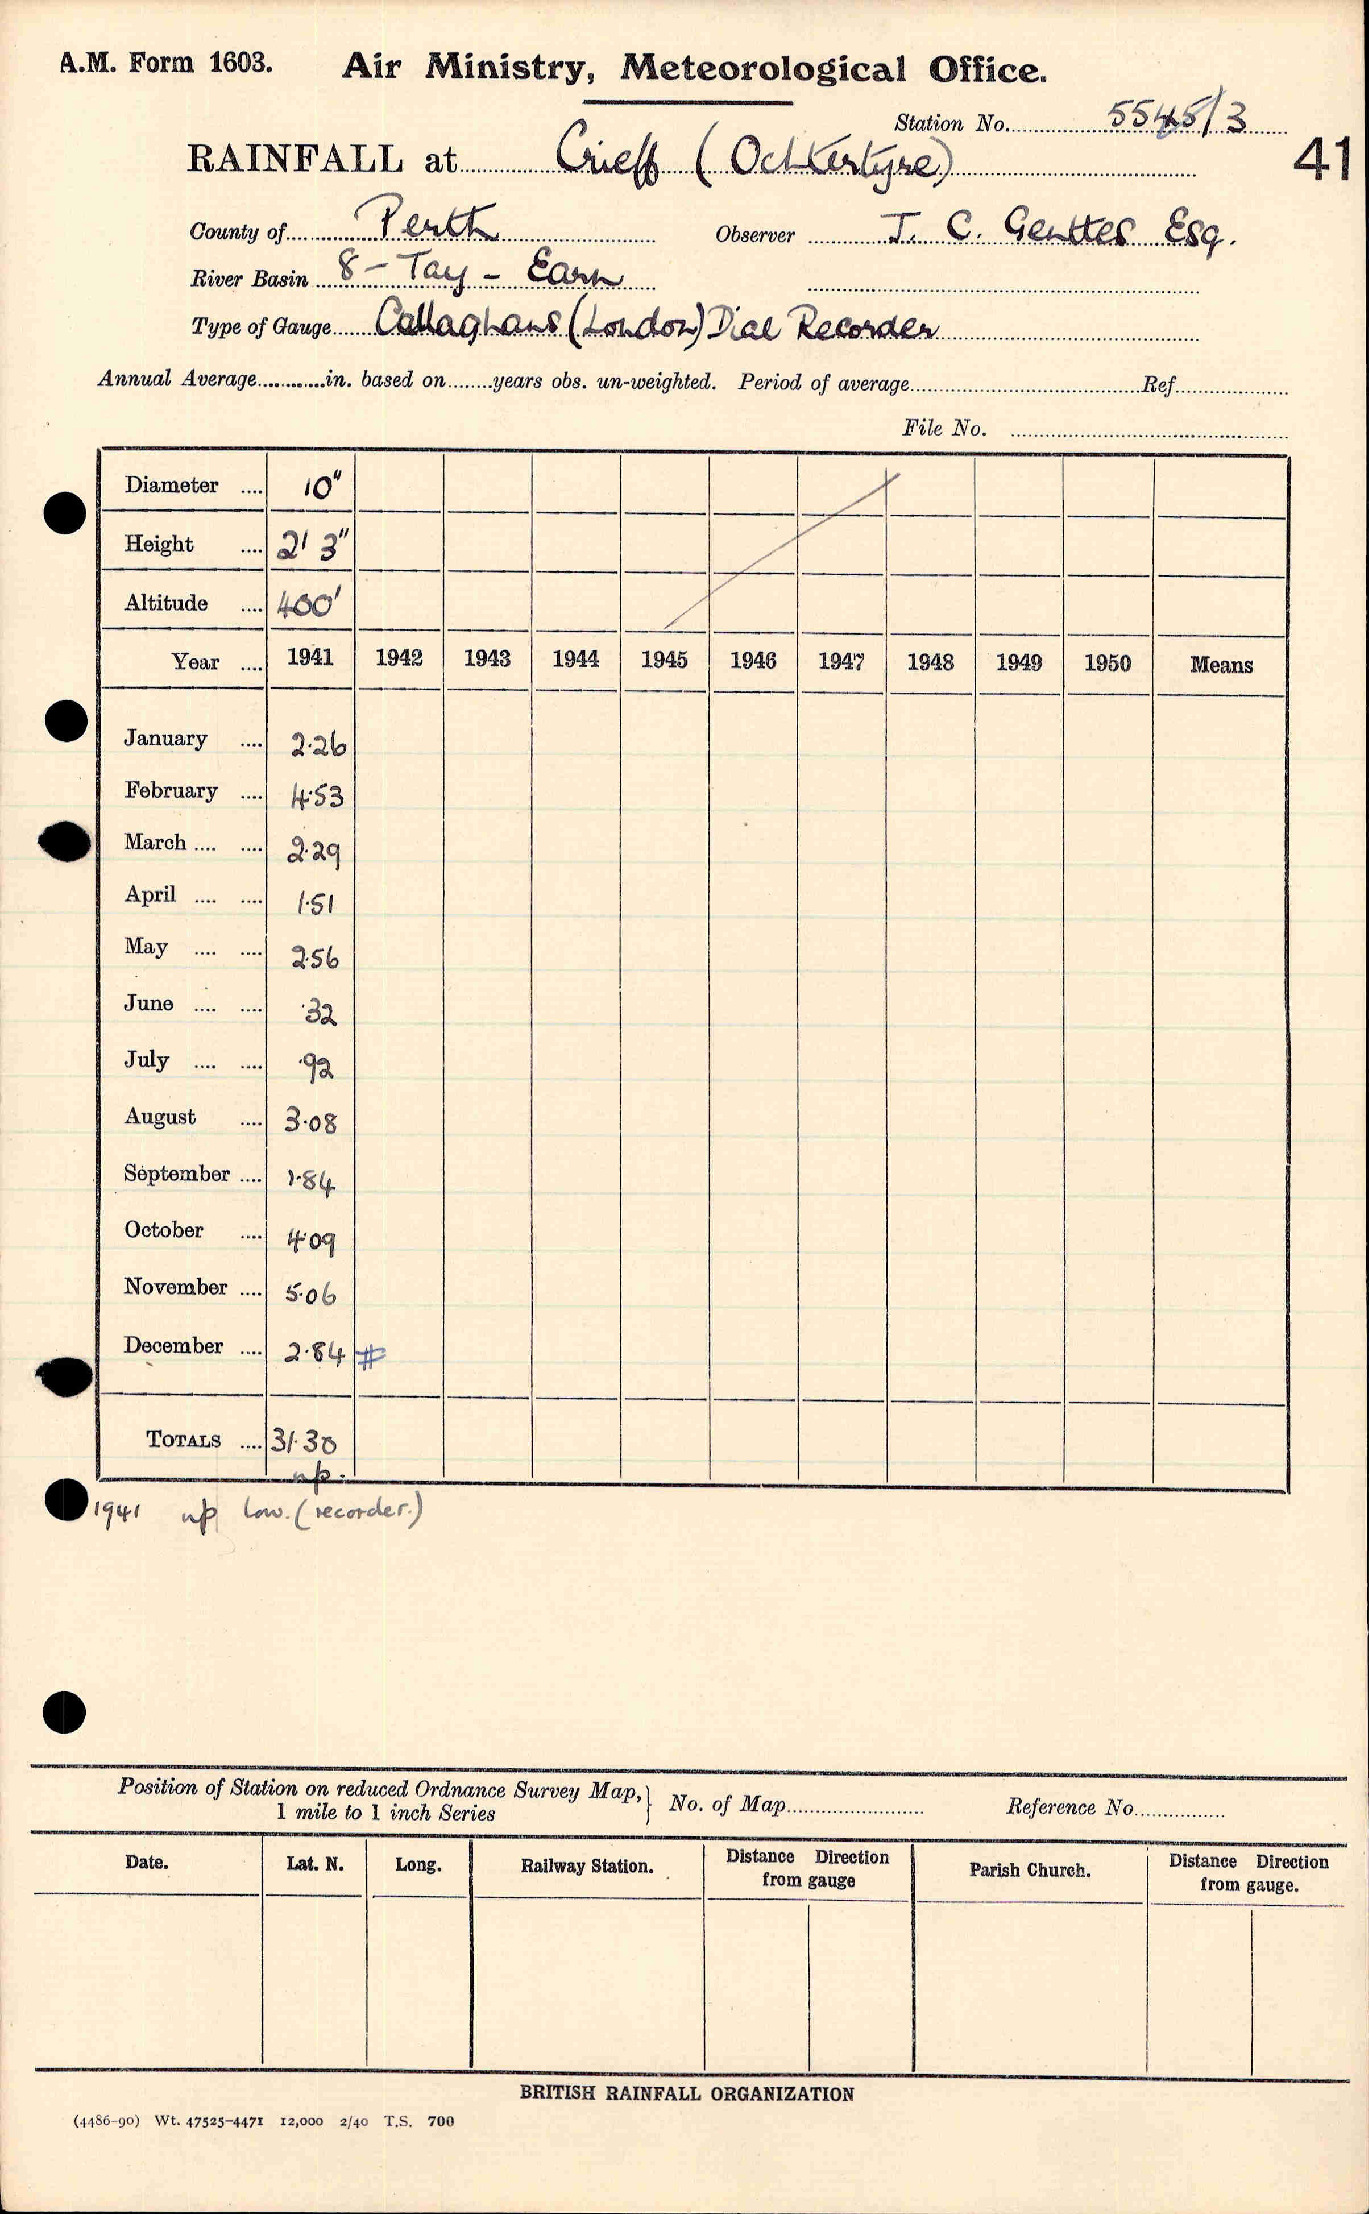 A.M. Form 1603. Air Ministry, Meteorological Office.
Station No. 5545/3
RAINFALL at Crieff (Ochtertyre)
41
County of Perth Observer J. C. Genttes Esq.
River Basin 8 - Tay - Earn
Type of Gauge Callaghans (London) Dial Recorder
Annual Average in. based on years obs. un-weighted. Period of average Ref
File No.
Diameter 10"
Height 2' 3"
Altitude 400'
Year 1941 1942 1943 1944 1945 1946 1947 1948 1949 1950 Means
January 2.26
February 4.53
March 2.29
April 1.51
May 2.56
June .32
July .92
August 3.08
September 1.84
October 4.09
November 5.06
December 2.84 #
TOTALS 31.30
np.
1941 np low. (recorder.)
Position of Station on reduced Ordnance Survey Map,
1 mile to 1 inch Series } No. of Map Reference No.
Date. Lat. N. Long. Railway Station. Distance Direction from gauge Parish Church. Distance Direction from gauge.
BRITISH RAINFALL ORGANIZATION
(4486-90) Wt. 47525-4471 12,000 2/40 T.S. 700